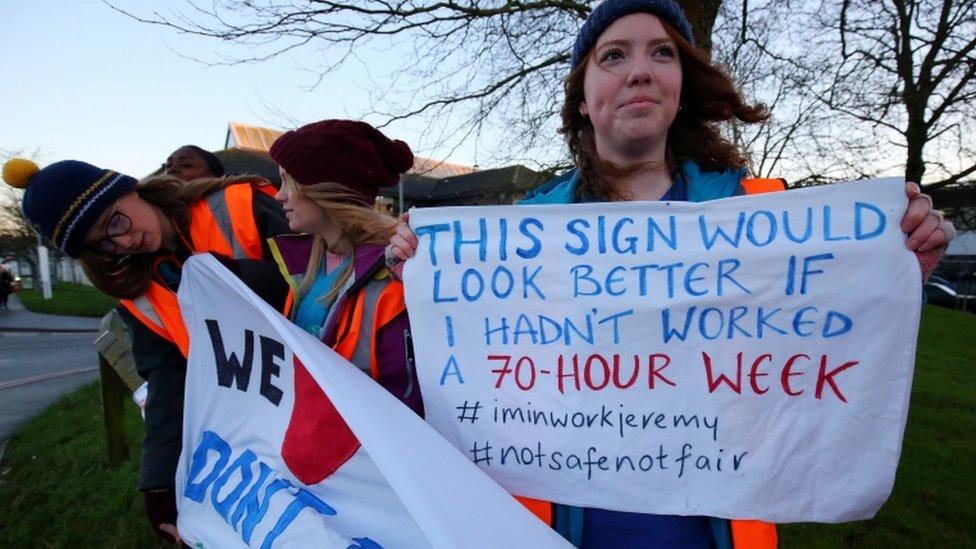 WE
DON'T
THIS SIGN WOULD
LOOK BETTER IF
I HADN'T WORKED
A 70-HOUR WEEK
#iminworkjeremy
#notsafenotfair